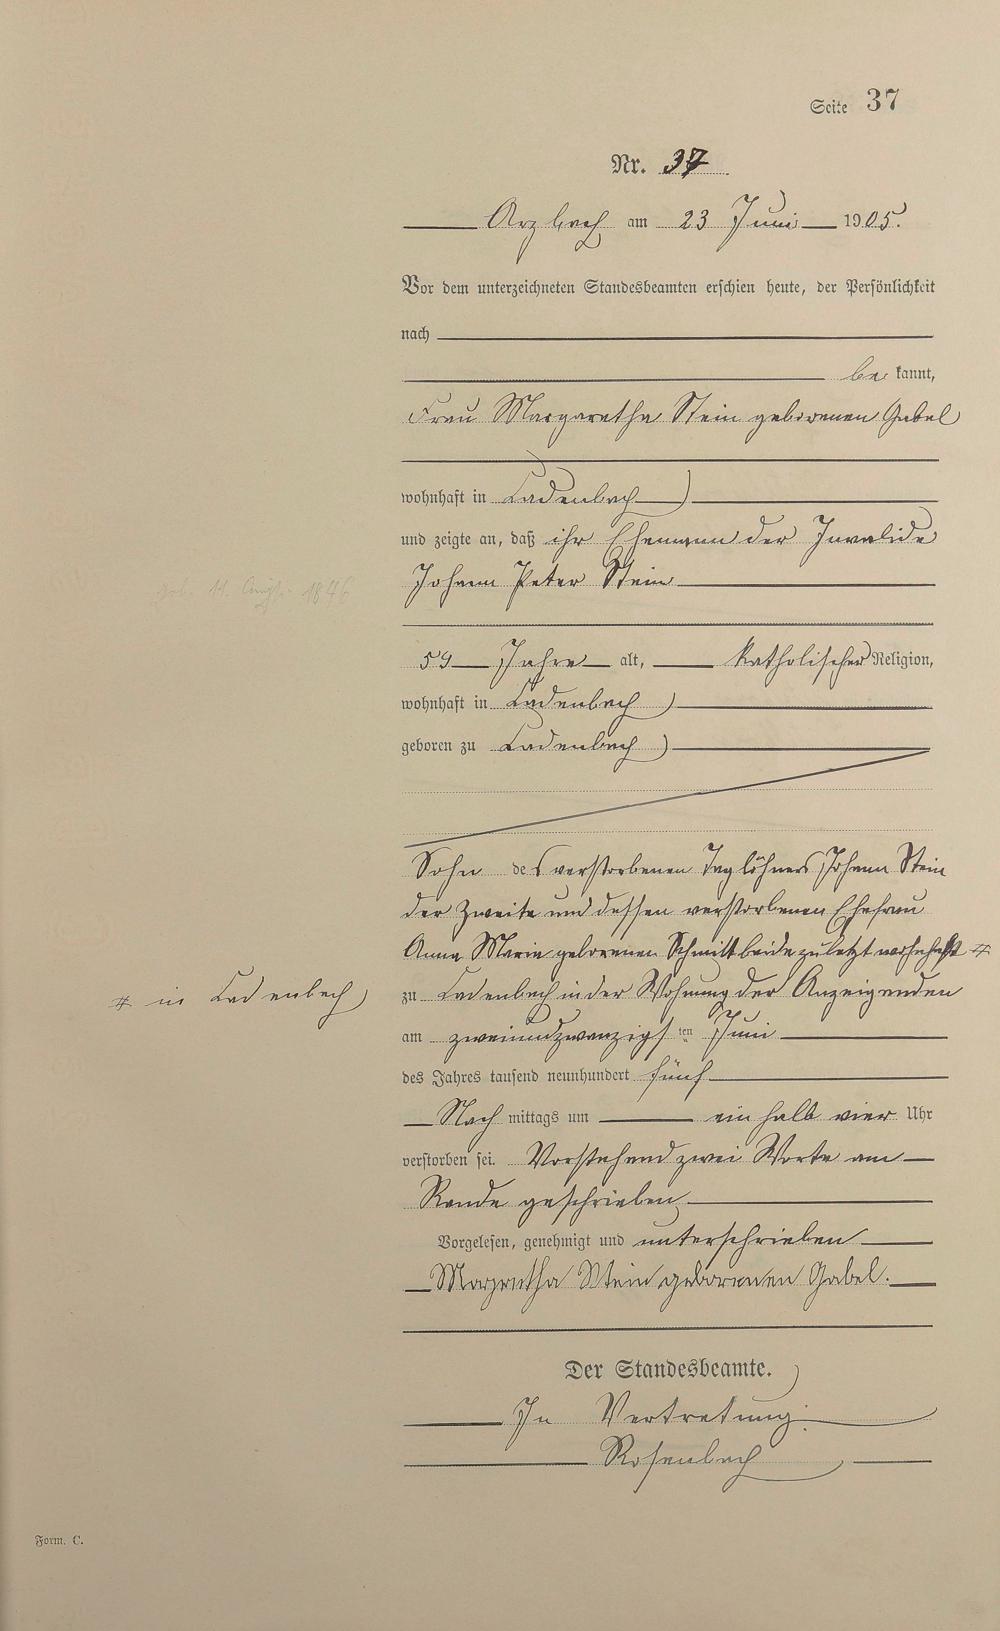 Seite 37
Nr. 37
Arzbach am 23 Juni 1905.
Vor dem unterzeichneten Standesbeamten erschien heute, der Persönlichkeit
nach
be kannt,
Frau Margaretha Stein geborenen Gabel
wohnhaft in Cadenbach
und zeigte an, daß ihr Ehemann der Invalide
Johann Peter Stein
1846
59 Jahre alt, katholischer Religion,
wohnhaft in Cadenbach
geboren zu Cadenbach
Sohn des verstorbenen Taglöhners Johann Stein
der Zweite und dessen verstorbenen Ehefrau
Anna Maria geborenen Schmitt beide zuletzt wohnhaft #
# in Cadenbach
zu Cadenbach in der Wohnung der Anzeigenden
am zweiundzwanzigsten Juni
des Jahres tausend neunhundert fünf
Nach mittags um ein halb vier Uhr
verstorben sei. Vorstehend zwei Worte am
Rande geschrieben.
Vorgelesen, genehmigt und unterschrieben
Margretha Stein geborenen Gabel.
Der Standesbeamte.
In Vertretung.
Rosenbach
Form. C.